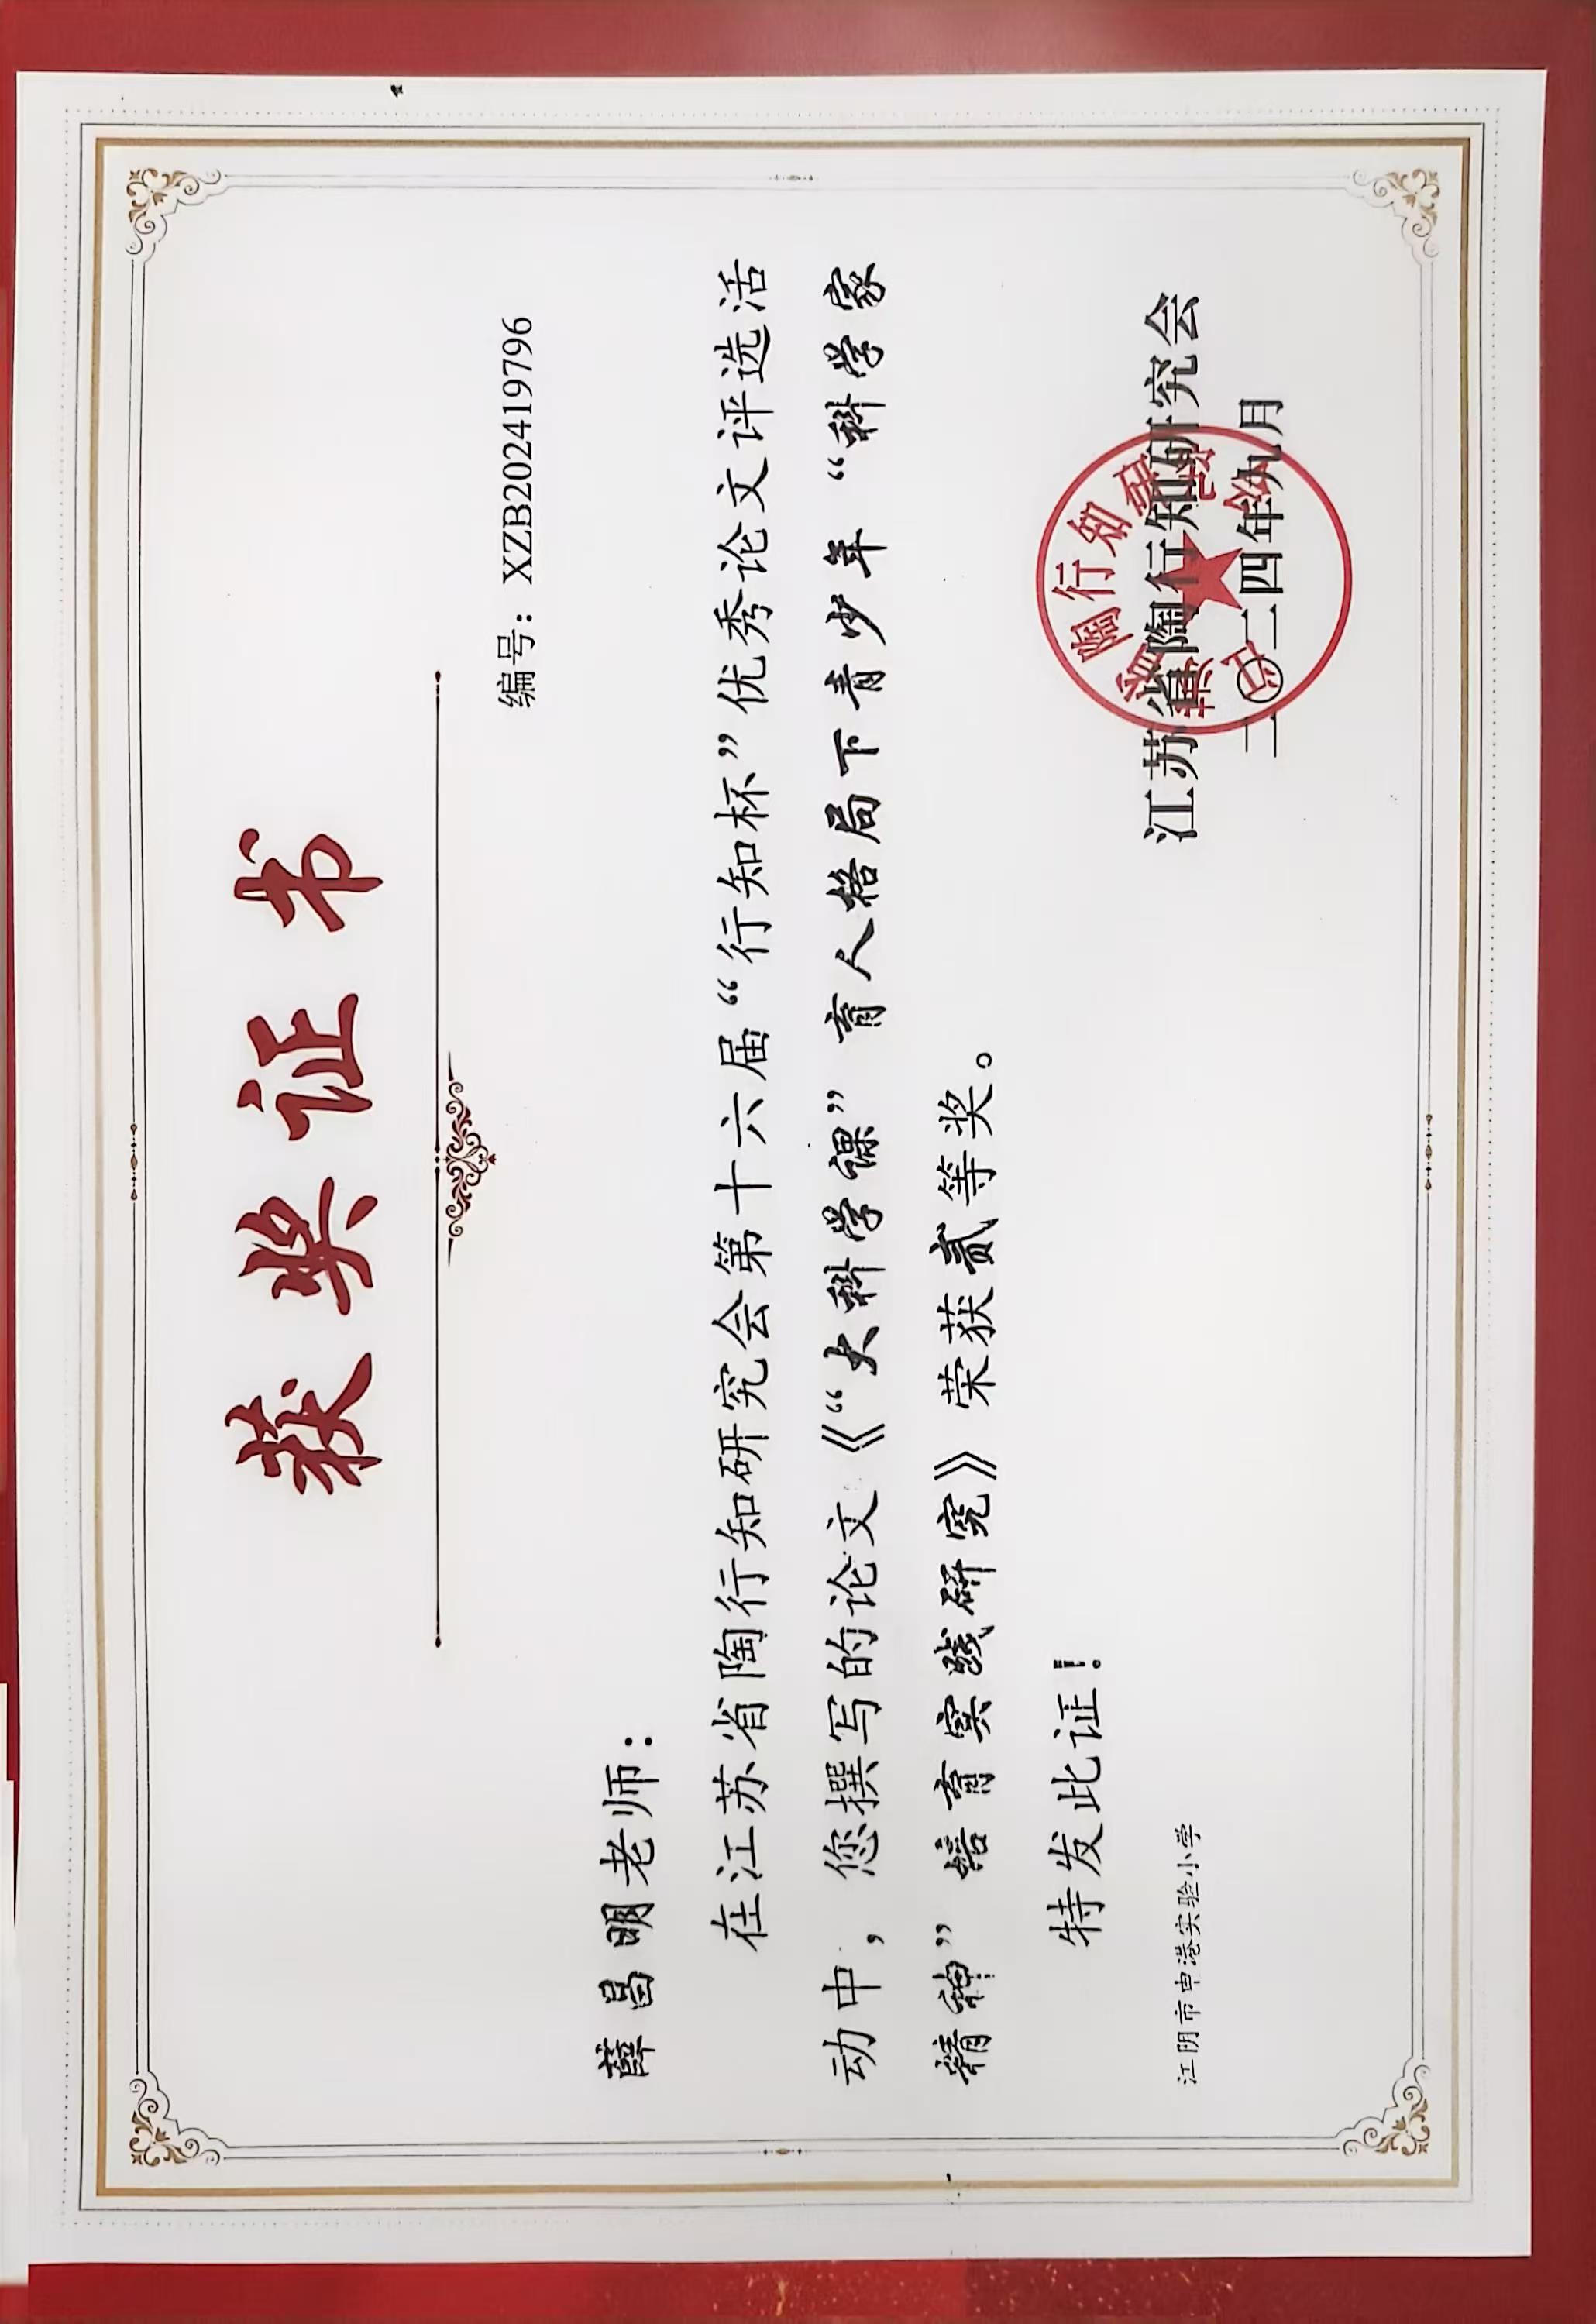 获奖证书
编号：XZB202419796
薛昌明老师：
在江苏省陶行知研究会第十六届“行知杯”优秀论文评选活
动中，您撰写的论文《“大科学课”育人格局下青少年“科学家
精神”培育实践研究》荣获贰等奖。
特发此证！
江阴市申港实验小学
江苏省陶行知研究会
二〇二四年九月